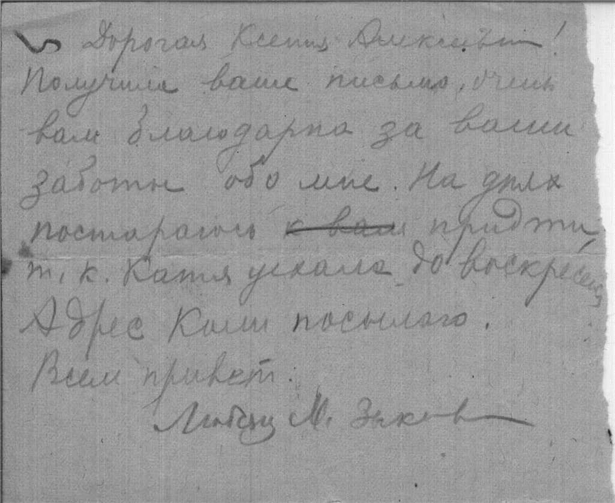 Дорогая Ксения Алексеевна!
Получила ваше письмо, очень
вам благодарна за ваши
заботы обо мне. На днях
постараюсь к вам придти,
т. к. Катя уехала до воскресенья
Адрес Коли посылаю.
Всем привет.
М.